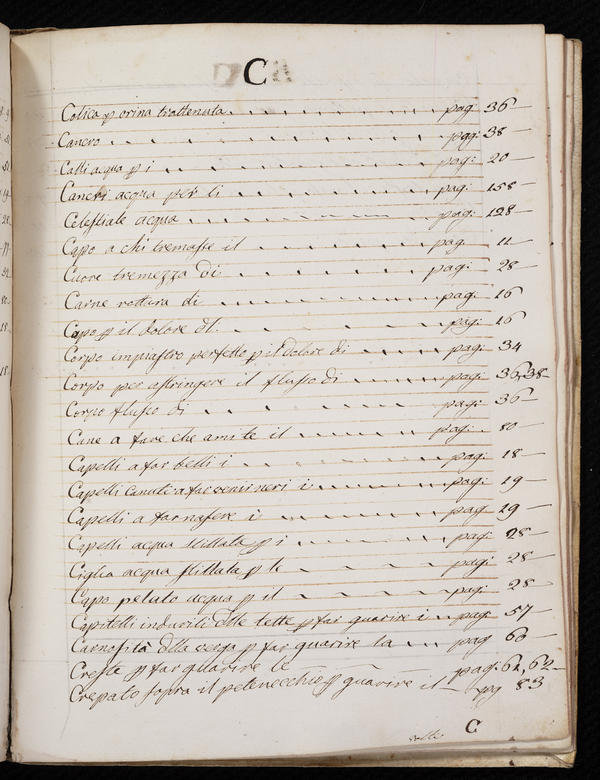 C
Colica p orina trattenuta pag: 36
Cancro pag: 38
Calli acqua p i pag: 20
Cancri acqua per li pag: 158
Celestiale acqua pag: 128
Capo a chi tremasse il pag. 11
Cuore tremezza di pag: 28
Carne rottura di pag: 16
Capo p il dolore di pag: 16
Corpo impiastro perfetto p il dolore di pag: 34
Corpo per astringere il flusso di pag: 36,38
Corpo flusso di pag: 36
Cane a fare che ami te il pag: 80
Capelli a far belli i pag: 18
Capelli canuti a far venir neri i pag: 19
Capelli a far nascere i pag: 29
Capelli acqua stillata p i pag: 28
Ciglia acqua stillata p le pag: 28
Capo pelato acqua p il pag: 28
Capitelli induriti delle tette p far guarire i pag: 57
Carnosità della verga p far guarire la pag 60
Creste p far guarire le pag: 61,62
Crepato sopra il petenecchio p guarire il pag 83
C